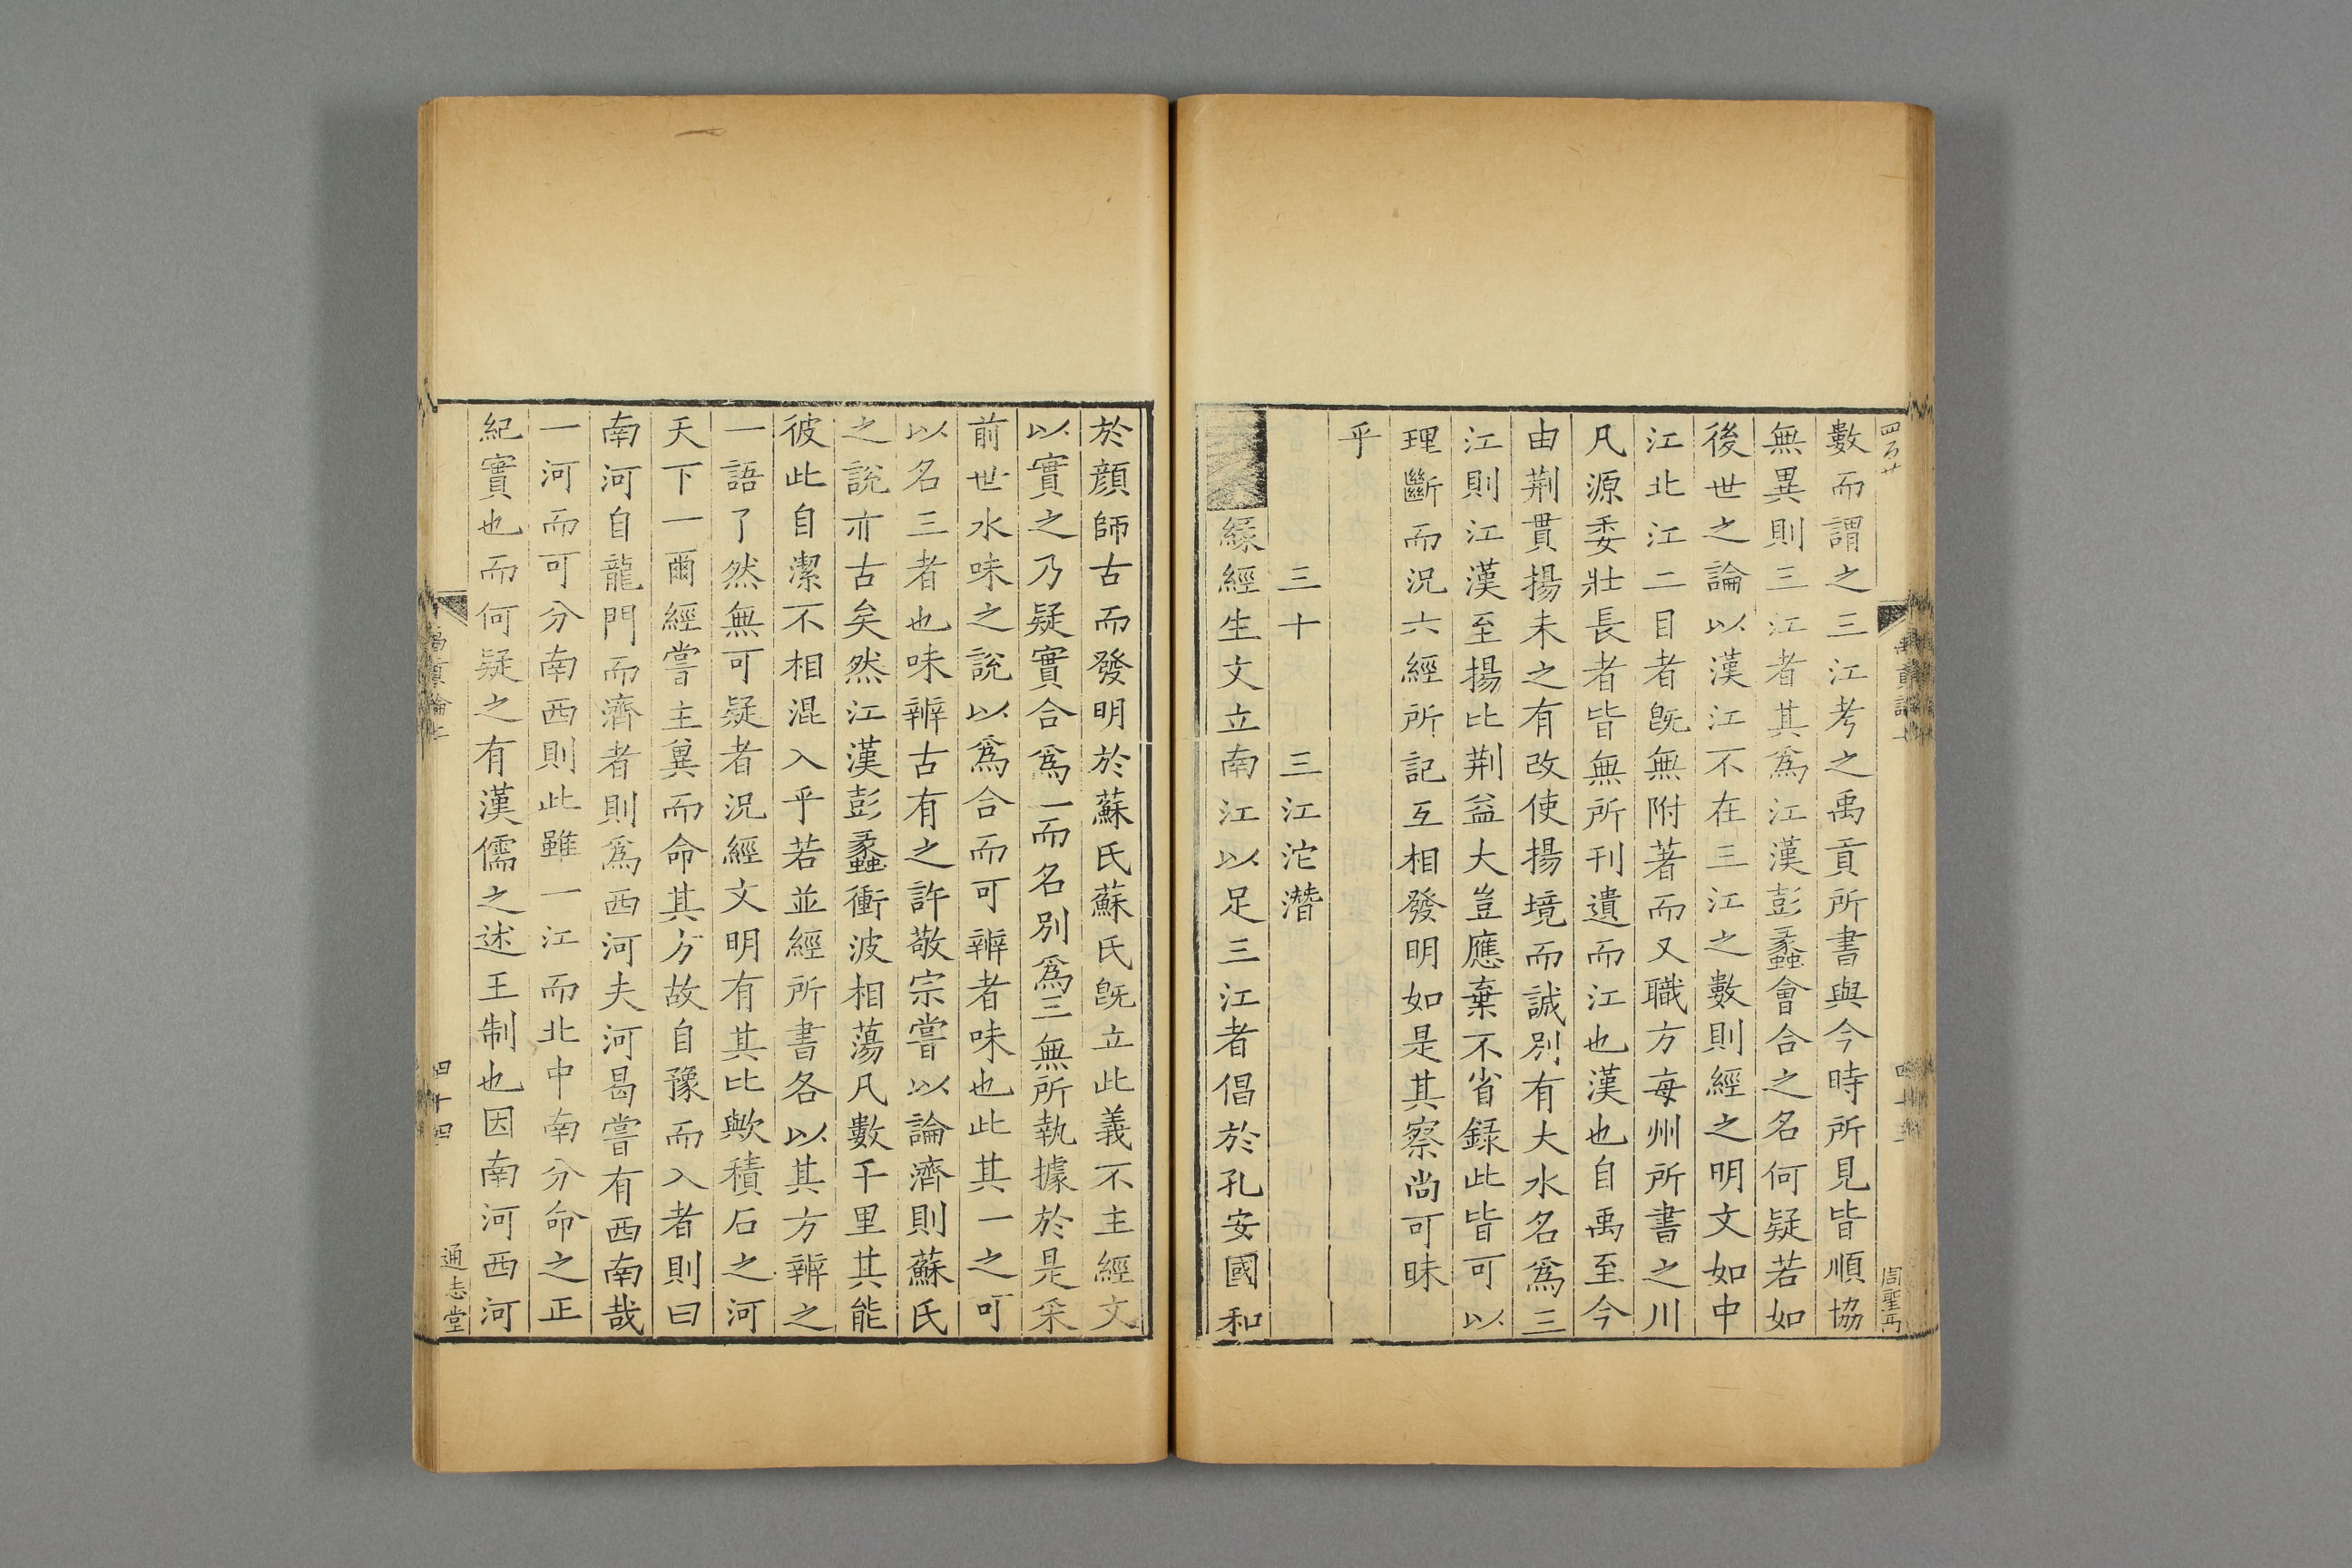 數而謂之三江考之禹貢所書與今時所見皆順協
無異則三江者其爲江漢彭蠡會合之名何疑若如
後世之論以漢江不在三江之數則經之明文如中
江北江二目者旣無附著而又職方每州所書之川
凡源委壯長者皆無所刊遺而江也漢也自禹至今
由荆貫揚未之有改使揚境而誠別有大水名爲三
江則江漢至揚比荆益大豈應棄不省録此皆可以
理斷而況六經所記互相發明如是其察尚可昧
乎
三十 三江沱潛
緣經生文立南江以足三江者倡於孔安國和
於顔師古而發明於蘇氏蘇氏旣立此義不主經文
以實之乃疑實合爲一而名別爲三無所執據於是采
前世水味之說以爲合而可辨者味也此其一之可
以名三者也味辨古有之許敬宗嘗以論濟則蘇氏
之說亦古矣然江漢彭蠡衝波相蕩凡數千里其能
彼此自潔不相混入乎若並經所書各以其方辨之
一語了然無可疑者況經文明有其比歟積石之河
天下一爾經嘗主冀而命其方故自豫而入者則曰
南河自龍門而濟者則爲西河夫河曷嘗有西南哉
一河而可分南西則此雖一江而北中南分命之正
紀實也而何疑之有漢儒之述王制也因南河西河
禹貢論上
四十四
通志堂